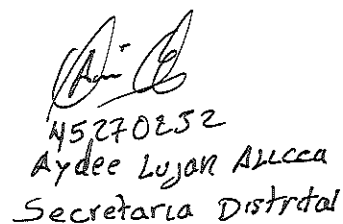 45270252
Aydee Lujan Allcca
Secretaria Distrital